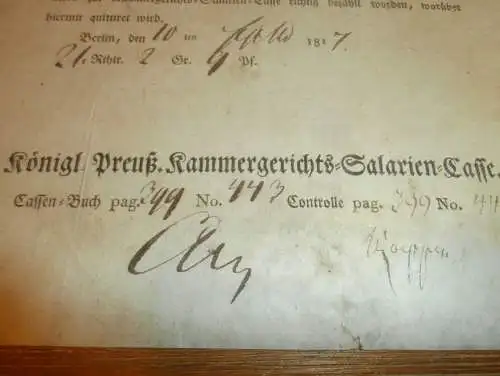 Kammergerichts-Salarien-Casse richtig bezahlt worden, worüber
hiermit quitiret wird.
Berlin, den 10 ten 1817.
21. Rthlr. 2 Gr. 9 Pf.
Königl. Preuß. Kammergerichts-Salarien-Casse.
Cassen-Buch pag. 399 No. 443 Controlle pag. 399 No. 44